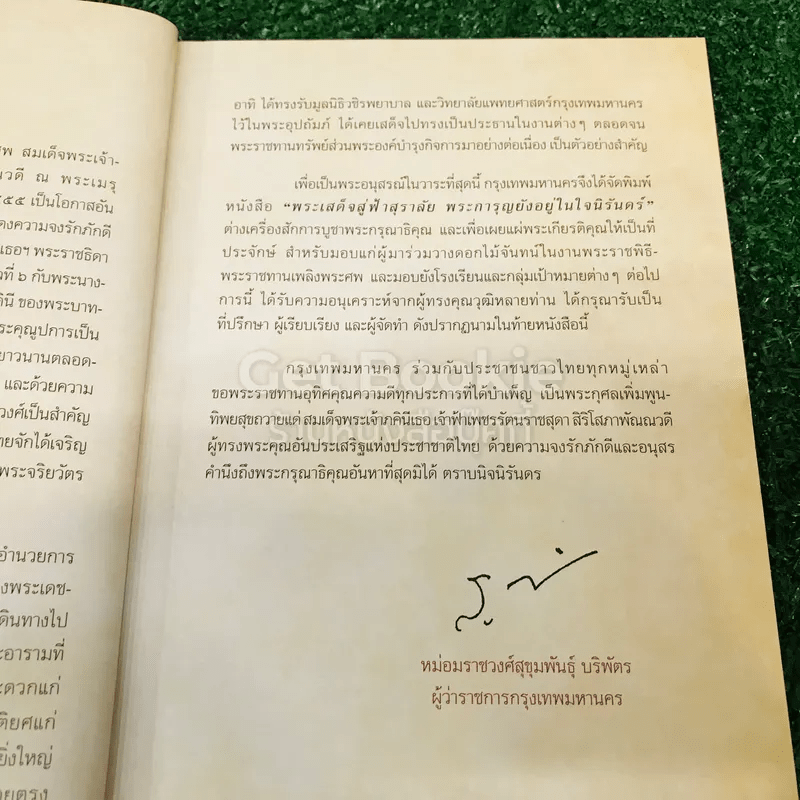 พ สมเด็จพระเจ้า-
วดี ณ พระเมรุ
๕๕๕ เป็นโอกาสอัน
ดงความจงรักภักดี
เธอฯ พระราชธิดา
วที่ ๖ กับพระนาง-
ทินี ของพระบาท-
ระคุณูปการเป็น
ยาวนานตลอด-
และด้วยความ
วงศ์เป็นสำคัญ
ทยจักได้เจริญ
พระจริยวัตร
อำนวยการ
งพระเดช-
ดินทางไป
ะอารามที่
ะดวกแก่
ติยศแก่
ยิ่งใหญ่
ายตรง
อาทิ ได้ทรงรับมูลนิธิวชิรพยาบาล และวิทยาลัยแพทยศาสตร์กรุงเทพมหานคร
ไว้ในพระอุปถัมภ์ ได้เคยเสด็จไปทรงเป็นประธานในงานต่างๆ ตลอดจน
พระราชทานทรัพย์ส่วนพระองค์บำรุงกิจการมาอย่างต่อเนื่อง เป็นตัวอย่างสำคัญ
เพื่อเป็นพระอนุสรณ์ในวาระที่สุดนี้ กรุงเทพมหานครจึงได้จัดพิมพ์
หนังสือ “พระเสด็จสู่ฟ้าสุราลัย พระการุญยังอยู่ในใจนิรันดร์”
ต่างเครื่องสักการบูชาพระกรุณาธิคุณ และเพื่อเผยแผ่พระเกียรติคุณให้เป็นที่
ประจักษ์ สำหรับมอบแก่ผู้มาร่วมวางดอกไม้จันทน์ในงานพระราชพิธี-
พระราชทานเพลิงพระศพ และมอบยังโรงเรียนและกลุ่มเป้าหมายต่างๆ ต่อไป
การนี้ ได้รับความอนุเคราะห์จากผู้ทรงคุณวุฒิหลายท่าน ได้กรุณารับเป็น
ที่ปรึกษา ผู้เรียบเรียง และผู้จัดทำ ดังปรากฏนามในท้ายหนังสือนี้
กรุงเทพมหานคร ร่วมกับประชาชนชาวไทยทุกหมู่เหล่า
ขอพระราชทานอุทิศคุณความดีทุกประการที่ได้บำเพ็ญ เป็นพระกุศลเพิ่มพูน-
ทิพยสุขถวายแด่ สมเด็จพระเจ้าภคินีเธอ เจ้าฟ้าเพชรรัตนราชสุดา สิริโสภาพัณณวดี
ผู้ทรงพระคุณอันประเสริฐแห่งประชาชาติไทย ด้วยความจงรักภักดีและอนุสร
คำนึงถึงพระกรุณาธิคุณอันหาที่สุดมิได้ ตราบนิจนิรันดร
Get Bookie
ร้านหนังสือเก็ทบุ๊คกี้
หม่อมราชวงศ์สุขุมพันธุ์ บริพัตร
ผู้ว่าราชการกรุงเทพมหานคร